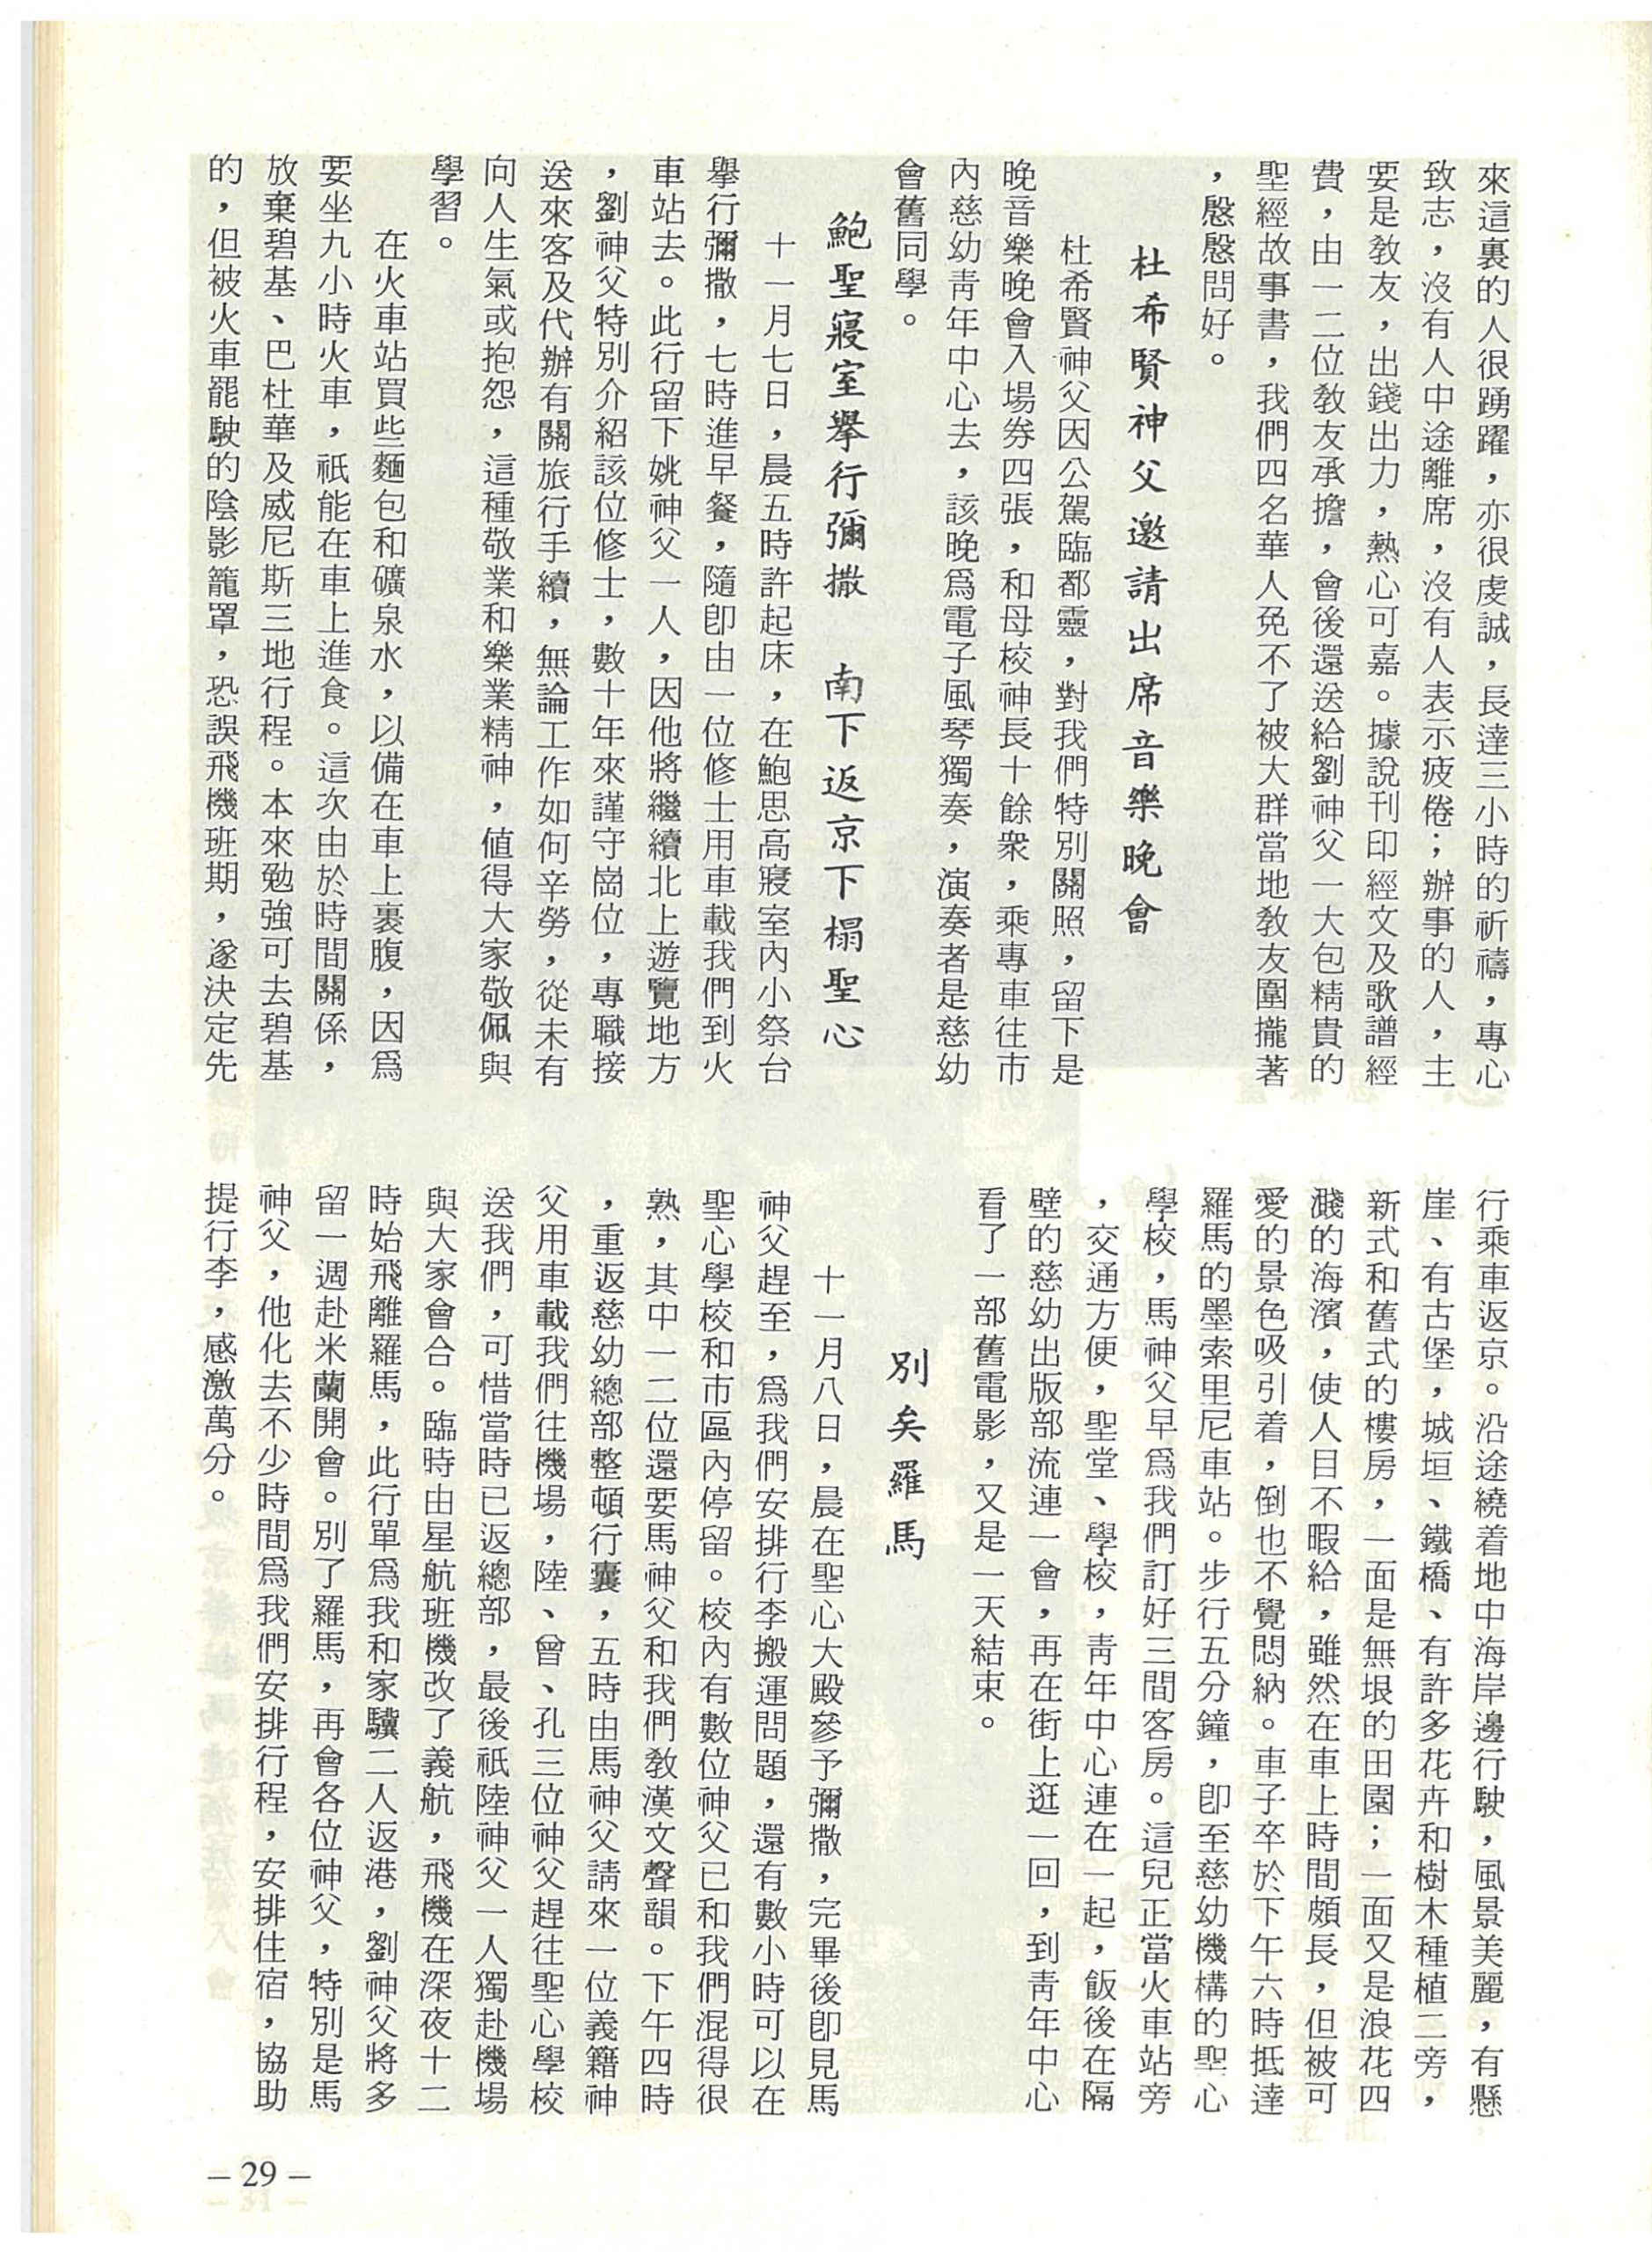 來這裏的人很踴躍，亦很虔誠，長達三小時的祈禱，專心
致志，沒有人中途離席，沒有人表示疲倦；辦事的人，主
要是教友，出錢出力，熱心可嘉。據說刊印經文及歌譜經
費，由一二位教友承擔，會後還送給劉神父一大包精貴的
聖經故事書，我們四名華人免不了被大群當地教友圍攏著
，慇慇問好。
杜希賢神父邀請出席音樂晚會
杜希賢神父因公駕臨都靈，對我們特別關照，留下是
晚音樂晚會入場券四張，和母校神長十餘衆，乘專車往市
內慈幼青年中心去，該晚爲電子風琴獨奏，演奏者是慈幼
會舊同學。
鮑聖寢室舉行彌撒　南下返京下榻聖心
十一月七日，晨五時許起床，在鮑思高寢室內小祭台
舉行彌撒，七時進早餐，隨即由一位修士用車載我們到火
車站去。此行留下姚神父一人，因他將繼續北上遊覽地方
，劉神父特別介紹該位修士，數十年來謹守崗位，專職接
送來客及代辦有關旅行手續，無論工作如何辛勞，從未有
向人生氣或抱怨，這種敬業和樂業精神，值得大家敬佩與
學習。
在火車站買些麵包和礦泉水，以備在車上裹腹，因爲
要坐九小時火車，祇能在車上進食。這次由於時間關係，
放棄碧基、巴杜華及威尼斯三地行程。本來勉強可去碧基
的，但被火車罷駛的陰影籠罩，恐誤飛機班期，遂決定先
行乘車返京。沿途繞着地中海岸邊行駛，風景美麗，有懸
崖、有古堡，城垣、鐵橋、有許多花卉和樹木種植二旁，
新式和舊式的樓房，一面是無垠的田園；一面又是浪花四
濺的海濱，使人目不暇給，雖然在車上時間頗長，但被可
愛的景色吸引着，倒也不覺悶納。車子卒於下午六時抵達
羅馬的墨索里尼車站。步行五分鐘，即至慈幼機構的聖心
學校，馬神父早爲我們訂好三間客房。這兒正當火車站旁
，交通方便，聖堂、學校，青年中心連在一起，飯後在隔
壁的慈幼出版部流連一會，再在街上逛一回，到青年中心
看了一部舊電影，又是一天結束。
別矣羅馬
十一月八日，晨在聖心大殿參予彌撒，完畢後即見馬
神父趕至，爲我們安排行李搬運問題，還有數小時可以在
聖心學校和市區內停留。校內有數位神父已和我們混得很
熟，其中一二位還要馬神父和我們敎漢文聲韻。下午四時
，重返慈幼總部整頓行囊，五時由馬神父請來一位義籍神
父用車載我們往機場，陸、曾、孔三位神父趕往聖心學校
送我們，可惜當時已返總部，最後祇陸神父一人獨赴機場
與大家會合。臨時由星航班機改了義航，飛機在深夜十二
時始飛離羅馬，此行單爲我和家驥二人返港，劉神父將多
留一週赴米蘭開會。別了羅馬，再會各位神父，特別是馬
神父，他化去不少時間爲我們安排行程，安排住宿，協助
提行李，感激萬分。
－29－